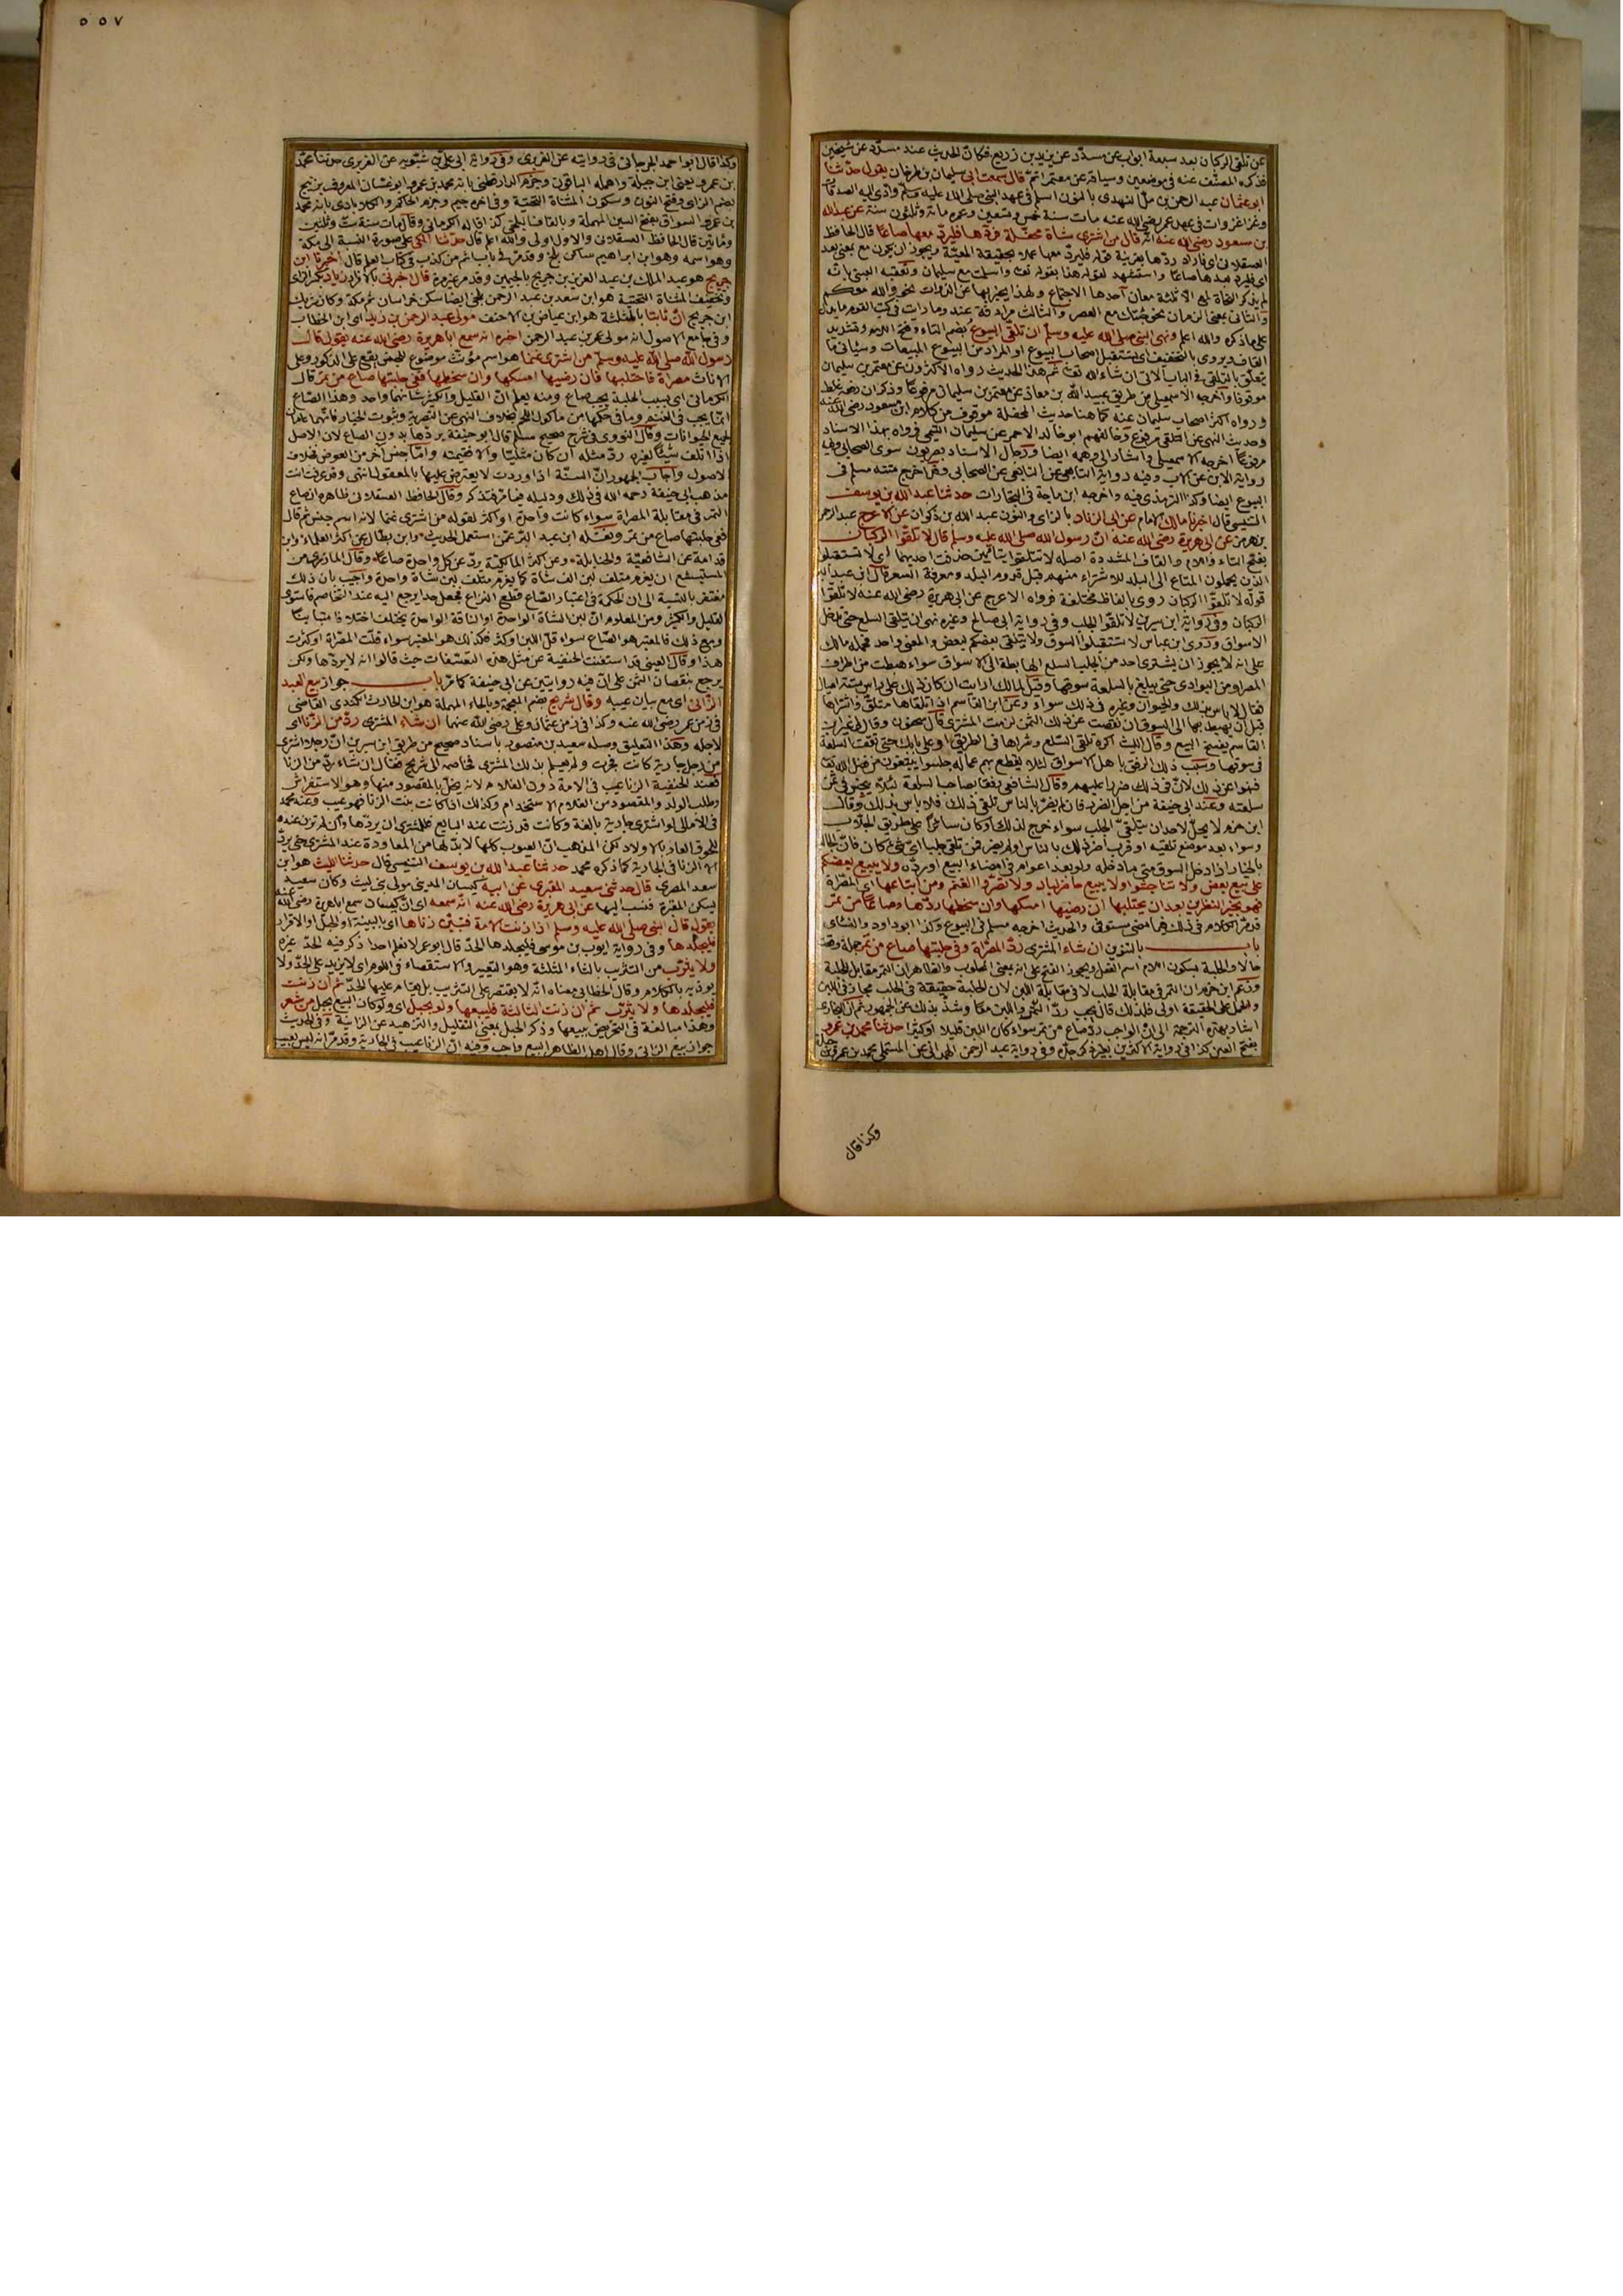 عن تلقى الركبان بعد سبعة ابواب عن مسدّد عن يزيد بن زريع فكانّ الحديث عند مسدّد عن شيخين
فذكره المصنّف عنه في موضعين وسياقه عن معتمر اتمّ قال سمعت ابى سليمان بن طرخان يقول حدّثنا
ابو عثمان عبد الرحمن بن ملّ النهدى بالنون اسلم في عهد النبي صلى الله عليه وسلم وادّى اليه الصدقات
وغزا غزوات في عهد عمر رضى الله عنه مات سنة خمس وتسعين وعمره مائة وثلثون سنة عن عبد الله
بن مسعود رضى الله عنه انّه قال من اشترى شاة محفّلة فردّها فليردّ معها صاعًا قال الحافظ
العسقلانى اى فاراد ردّها بقرينة قوله فليردّ معها عملا بحقيقة المعيّة ويجوز ان يكون مع بمعنى بعد
اى فليردّ بعدها صاعًا واستشهد لقوله هذا بقوله تعالى واسلمت مع سليمان وتعقبه العينى بانّه
لم يذكر النحاة لمع الا ثلثة معان احدها الاجتماع ولهذا يخبر بها عن الذوات نحو والله معكم
والثانى بمعنى الزمان نحو جئتك مع العصر والثالث مرادفة عند وما رايت في كتب القوم ما يدل
على ما ذكره والله اعلم ونهى النبى صلى الله عليه وسلم ان تلقى البيوع بضم التاء وفتح اللام وتشديد
القاف ويروى بالتخفيف اى يستقبل اصحاب البيوع او المراد من البيوع المبيعات وسيأتى ما
يتعلّق بالتلقى في الباب الآتى ان شاء الله تعالى ثم هذا الحديث رواه الاكثرون عن معتمر بن سليمان
موقوفا واخرجه الاسمعيلى من طريق عبيد الله بن معاذ عن معتمر بن سليمان مرفوعًا وذكر ان رفعه غلط
ورواه اكثر اصحاب سليمان عنه كما هنا حديث المحفلة موقوف من كلام ابن مسعود رضى الله عنه
وحديث النهى عن التلقى مرفوع وخالفهم ابو خالد الاحمر عن سليمان التيمى فرواه بهذا الاسناد
مرفوعًا اخرجه الاسمعيلى واشار الى وهمه ايضا ورجال الاسناد بصريون سوى الصحابى وفيه
رواية الابن عن الاب وفيه رواية التابعى عن التابعى عن الصحابى وقد اخرج متنه مسلم في
البيوع ايضا وكذا الترمذى فيه واخرجه ابن ماجة في التجارات حدثنا عبد الله بن يوسف
التنيسى قال اخبرنا مالك الامام عن ابى الزناد بالزاى والنون عبد الله بن ذكوان عن الاعرج عبد الرحمن
بن هرمز عن ابى هريرة رضى الله عنه انّ رسول الله صلى الله عليه وسلم قال لا تلقّوا الركبان
بفتح التاء واللام والقاف المشددة اصله لا تتلقوا بتائين حذفت احديهما اى لا تستقبلوا
الذين يحملون المتاع الى البلد للاشتراء منهم قبل قدوم البلد ومعرفة السعر قال ابن عبد البر
قوله لا تلقّوا الركبان روى بالفاظ مختلفة فرواه الاعرج عن ابى هريرة رضى الله عنه لا تلقّوا
الركبان وفي رواية ابن سيرين لا تلقّوا الجلب وفي رواية ابى صالح وغيره نهى ان يتلقى السلع حتى تدخل
الاسواق وروى ابن عباس لا تستقبلوا السوق ولا يتلقى بعضكم لبعض والمعنى واحد فحمله مالك
على انه لا يجوز ان يشترى احد من الجلب السلع الهابطة الى الاسواق سواء هبطت من اطراف
المصر او من البوادى حتى يبلغ بالسلعة سوقها وقيل لمالك ارايت ان كان ذلك على راس ستة اميال
فقال لا باس بذلك والحيوان وغيره في ذلك سواء وعن ابن القاسم اذا تلقاها متلقّ واشتراها
قبل ان يهبط بها الى السوق
القاسم يفسخ البيع وقال الليث اكره تلقى السّلع وشراها في الطريق او على بابك حتى تقف السلعة
في سوقها وسبب ذلك الرفق باهل الاسواق لئلا يقطع بهم عما له جلسوا يبتغون من فضل الله تعالى
فنهوا عن ذلك لانّ في ذلك ضررا عليهم وقال الشافعى رفقا بصاحب السلعة لئلا يبخس في ثمن
سلعته وعند ابى حنيفة من اجل الضرر فان لم يضرّ بالناس تلقى ذلك فلا باس بذلك وقال
ابن حزم لا يحلّ لاحد ان يتلقّى الجلب سواء خرج لذلك او كان سائرًا على طريق الجلاب
وسواء بعد موضع تلقيه او قرب اضر ذلك بالناس او لم يضر فمن تلقى جلبا اىّ شئ كان فانّ الجالب
بالخيار اذا دخل السوق متى ما دخله ولو بعد اعوام في امضاء البيع او ردّه ولا يبيع بعضكم
على بيع بعض ولا تناجشوا ولا يبيع حاضر لباد ولا تصرّوا الغنم ومن ابتاعها اى المصرّاة
فهو بخير النظرين بعد ان يحتلبها ان رضيها امسكها وان سخطها ردّها وصاعًا من تمر
قد مرّ الكلام في ذلك فيما مضى مستوفى والحديث اخرجه مسلم في البيوع وكذا ابو داود والنسائى
باب بالتنوين ان شاء المشترى ردّ المصرّاة وفي حلبتها صاع من تمر جملة وقعت
حالا والحلبة بسكون اللام اسم الفعل ويجوز الفتح على انه بمعنى المحلوب والظاهر ان التمر مقابل للحلبة
وزعم ابن حزم ان التمر في مقابلة الحلب لا في مقابلة اللبن لان الحلبة حقيقة في الحلب مجاز في اللبن
والحمل على الحقيقة اولى فلذلك قال يجب ردّ التمر واللبن معًا وشذّ بذلك عن الجمهور ثم ان البخارى
اشار بهذه الترجمة الى انّ الواجب ردّ صاع من تمر سواء كان اللبن قليلا او كثيرا حدثنا محمد بن عمرو
بفتح العين كذا في رواية الاكثرين بغير ذكر جدّه وفي رواية عبد الرحمن الهمدانى عن المستملى محمد بن عمرو بن جبلة
وكذا قال
٥٥٧
وكذا قال ابو احمد الجرجانى في روايته عن الفربرى وفي رواية ابى على بن شبّويه عن الفربرى حدثنا محمّد
بن عمرو يعنى ابن جبلة واهمله الباقون وجزم الدارقطنى بانه محمد بن عمرو ابو غسّان المعروف بزنيج
بضم الزاى وفتح النون وسكون المثناة التحتية وفي اخره جيم وجزم الحاكم والكلاباذى بانه محمد
بن عمرو السواق بفتح السين المهملة وبالقاف البلخى كذا قاله الكرمانى وقال مات سنة ست وثلثين
ومأتين قال الحافظ العسقلانى والاول اولى والله اعلم قال حدّثنا المكى على صورة النسبة الى مكة
وهو اسمه وهو ابن ابراهيم ساكن بلخ وقد مرّ في باب اثم من كذب في كتاب العلم قال اخبرنا ابن
جريج هو عبد الملك بن عبد العزيز بن جريج بالجيمين وقد مر غير مرة قال اخبرنى بالافراد زياد بكسر الزاى
وتخفيف المثناة التحتية هو ابن سعد بن عبد الرحمن بلخى ايضا سكن خراسان ثم مكة وكان شريك
ابن جريج انّ ثابتا بالمثلثة هو ابن عياض بن الاحنف مولى عبد الرحمن بن زيد اى ابن الخطاب
وفي جامع الاصول انه مولى عمر بن عبد الرحمن اخبره انه سمع ابا هريرة رضى الله عنه يقول قال
رسول الله صلى الله عليه وسلم من اشترى غنما هو اسم مؤنث موضوع للجنس يقع على الذكور وعلى
الاناث مصراة فاحتلبها فان رضيها امسكها وان سخطها ففي حلبتها صاع من تمر قال
الكرمانى اى بسبب الحلبة يجب صاع ومنه يعلم انّ القليل والكثير شانهما واحد وهذا الصّاع
انّما يجب في الغنم وما في حكمها من ماكول اللحم بخلاف النهى عن التصرية وثبوت الخيار فانهما عامان
لجميع الحيوانات وقال النووى في شرح صحيح مسلم قال ابو حنيفة يردّها بدون الصاع لان الاصل
اذا اتلف شيئًا لغيره ردّ مثله ان كان مثليّا والا فقيمته وامّا جنس اخر من العوض فخلاف
الاصول واجاب الجمهور انّ السنّة اذا وردت لا يعترض عليها بالمعقول انتهى وقد عرفت انت
مذهب ابى حنيفة رحمه الله في ذلك ودليله فيما مرّ فتذكر وقال الحافظ العسقلانى ظاهره ان صاع
التمر في مقابلة المصراة سواء كانت واحدة او اكثر لقوله من اشترى غنما لانه اسم جنس ثم قال
ففي حلبتها صاع من تمر ونقله ابن عبد البرّ عمّن استعمل الحديث وابن بطّال عن اكثر العلماء وابن
قدامة عن الشافعيّة والحنابلة وعن اكثر المالكيّة يردّ عن كل واحدة صاعًا وقال المازرى من
المستبشع ان يغرم متلف لبن الف شاة كما يغرم متلف لبن شاة واحدة واجيب بان ذلك
مغتفر بالنسبة الى ان الحكمة في اعتبار الصّاع قطع النزاع فجعل حدا يرجع اليه عند التخاصم فاستوى
القليل والكثير ومن المعلوم انّ لبن الشاة الواحدة او الناقة الواحدة يختلف اختلافا متباينًا
ومع ذلك فالمعتبر هو الصّاع سواء قلّ اللبن او كثر فكذلك هو المعتبر سواء قلّت المصرّاة او كثرت
هذا وقال العينى قد استغنت الحنفية عن مثل هذه التعسّفات حيث قالوا انه لا يردّها ولكن
يرجع بنقصان الثمن على انّ فيه روايتين عن ابى حنيفة كما مرّ باب جواز بيع العبد
الزّانى اى مع بيان عيبه وقال شريح بضم المعجمة وبالحاء المهملة هو ابن الحارث الكندى القاضى
في زمن عمر رضى الله عنه وكذا في زمن عثمان وعلى رضى الله عنهما ان شاء المشترى ردّ من الزّنا اى
لاجله وهذا التعليق وصله سعيد بن منصور باسناد صحيح من طريق ابن سيرين انّ رجلا اشترى
من رجل جارية كانت فجرت ولم يعلم بذلك المشترى فخاصمه الى شريح فقال ان شاء ردّ من الزنا
فعند الحنفية الزنا عيب في الامة دون الغلام لانه يخلّ بالمقصود منها وهو الاستفراش
وطلب الولد والمقصود من الغلام الاستخدام وكذلك اذا كانت بنت الزنا فهو عيب وعند محمد
في الامالى لو اشترى جارية بالغة وكانت قد زنت عند البايع فللمشترى ان يردّها وان لم تزن عنده
للحوق العار بالاولاد لكن المذهب انّ العيوب كلها لابدّ لها من المعاودة عند المشترى حتى يردّ
الا الزنا في الجارية كما ذكره محمد حدثنا عبد الله بن يوسف التنيسى قال حدثنا الليث هو ابن
سعد المصرى قال حدثنى سعيد المقبرى عن ابيه كيسان المدينى مولى بنى ليث وكان سعيد
يسكن المقبرة فنسب اليها عن ابى هريرة رضى الله عنه انّه سمعه اى انّ كيسان سمع ابا هريرة رضى الله عنه
يقول قال النبى صلى الله عليه وسلم اذا زنت الامة فتبيّن زناها اى بالبينة او بالحبل او الاقرار
فليجلدها وفي رواية ايوب بن موسى فليجلدها الحدّ قال ابو عمر لا نعلم احدا ذكر فيه الحدّ غيره
ولا يثرّب من التثريب بالثاء المثلثة وهو التعيير والاستقصاء في اللوم اى لا يزيد على الحدّ ولا
يؤذيه بالكلام وقال الخطابى معناه انّه لا يقتصر على التثريب بل يقام عليها الحدّ ثم ان زنت
فليجلدها ولا يثرّب ثم ان زنت الثالثة فليبعها ولو بحبل اى ولو كان البيع بحبل من شعر
وهذا مبالغة في التحريض ببيعها وذكر الحبل بمعنى التقليل والتزهيد عن الزانية وفي الحديث
جواز بيع الزانى وقال اهل الظاهر البيع واجب وفيه انّ الزنا عيب في الجارية وقد مرّ انه ليس بعيب